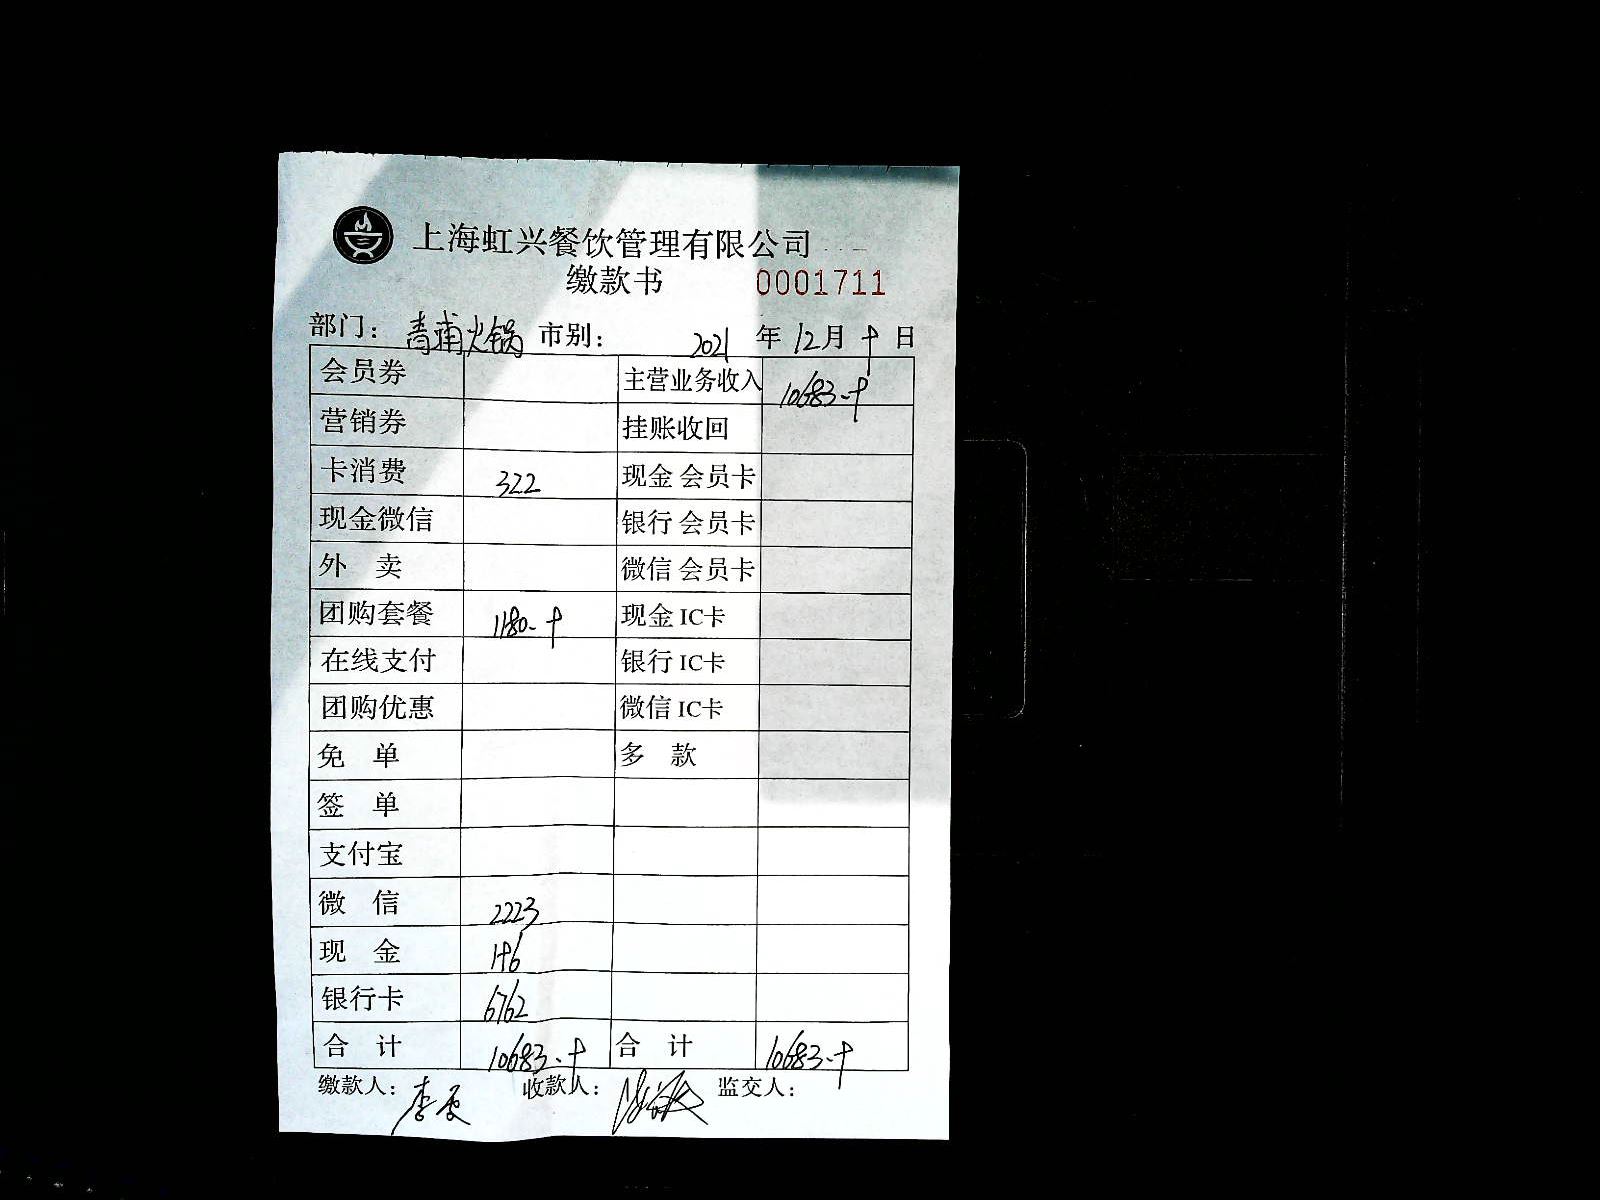 上海虹兴餐饮管理有限公司
缴款书 0001711
部门: 青浦火锅 市别: 2021 年 12 月 9 日
会员券 主营业务收入 10683.9
营销券 挂账收回
卡消费 322 现金 会员卡
现金微信 银行 会员卡
外 卖 微信 会员卡
团购套餐 1180.9 现金 IC卡
在线支付 银行 IC卡
团购优惠 微信 IC卡
免 单 多 款
签 单
支付宝
微 信 2223
现 金 196
银行卡 6762
合 计 10683.9 合 计 10683.9
缴款人: 李 收款人: 监交人: